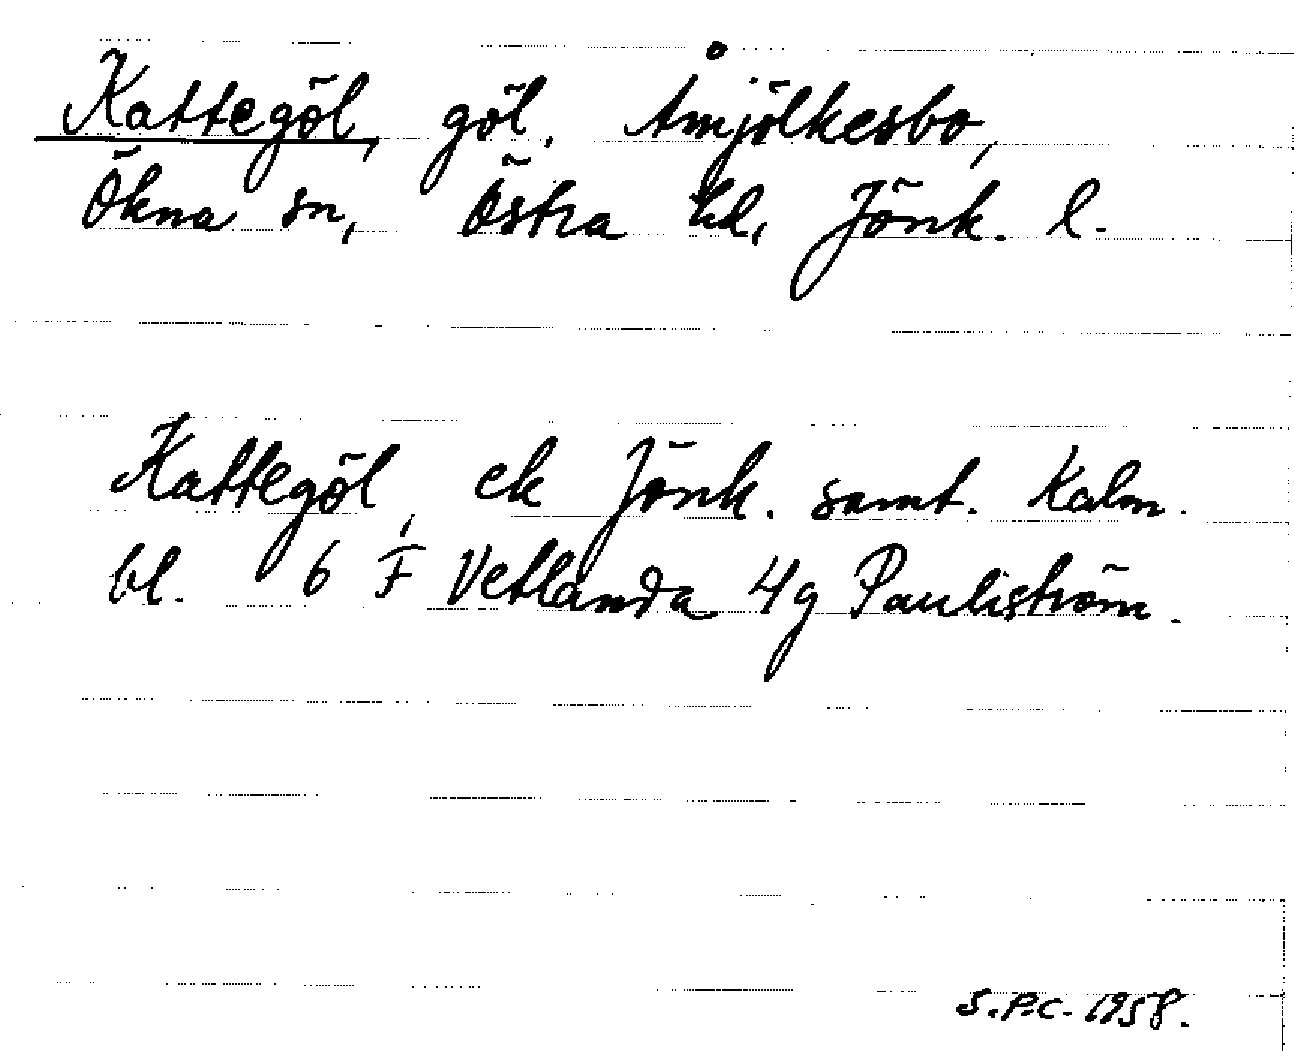 Kattegöl, göl. Åmjölkesbo,
Ökna sn, Östra hd, Jönk. l.
Kattegöl, ek Jönk. samt. Kalm.
bl. 6 F Vetlanda 4g Pauliström.
S.P.C. 1958.